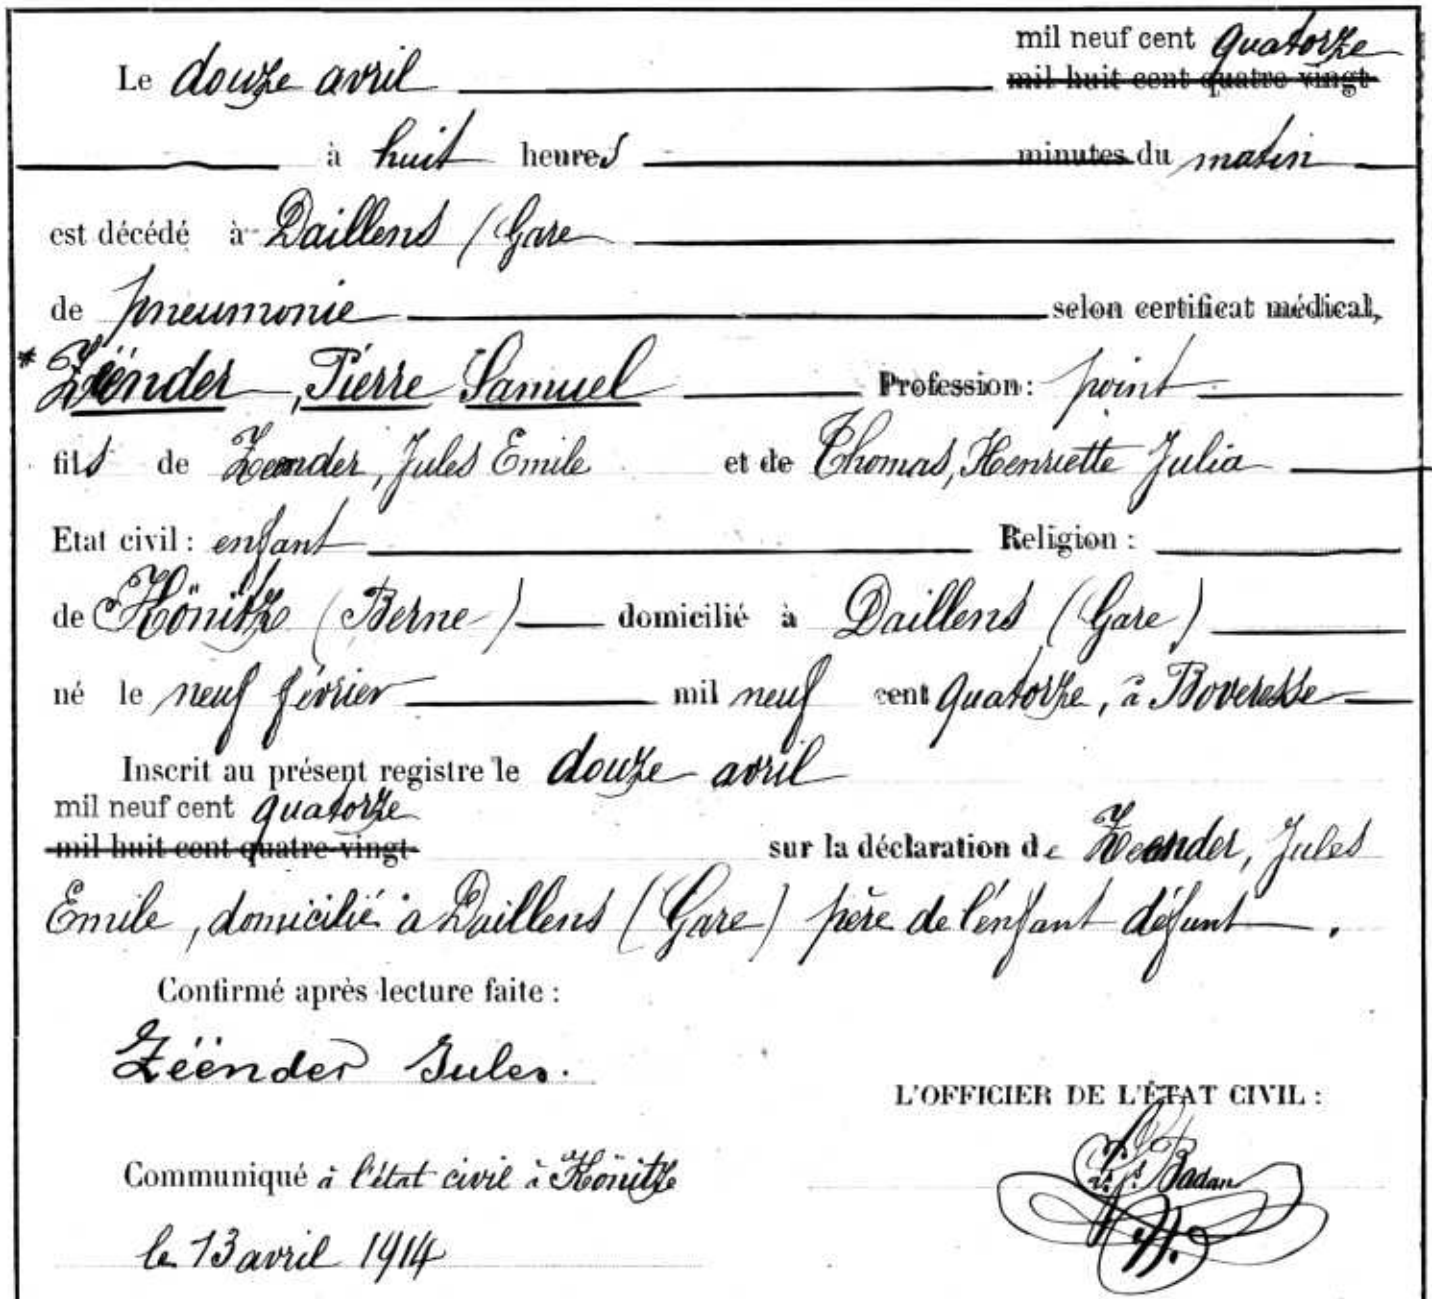 mil neuf cent quatorze
Le douze avril mil huit cent quatre vingt
à huit heures minutes du matin
est décédé à Daillens (Gare
de pneumonie selon certificat médical,
* Zëënder, Pierre Samuel Profession: point
fils de Zeender, Jules Emile et de Thomas, Henriette Julia
Etat civil : enfant Religion :
de Könitz (Berne) domicilié à Daillens (Gare)
né le neuf février mil neuf cent quatorze, à Boveresse
Inscrit au présent registre le douze avril
mil neuf cent quatorze
mil huit cent quatre-vingt sur la déclaration de Zeender, Jules
Emile, domicilié à Daillens (Gare) père de l'enfant défunt.
Confirmé après lecture faite :
Zëënder Jules.
L'OFFICIER DE L'ÉTAT CIVIL :
Communiqué à l'état civil à Könitz
Badan
le 13 avril 1914